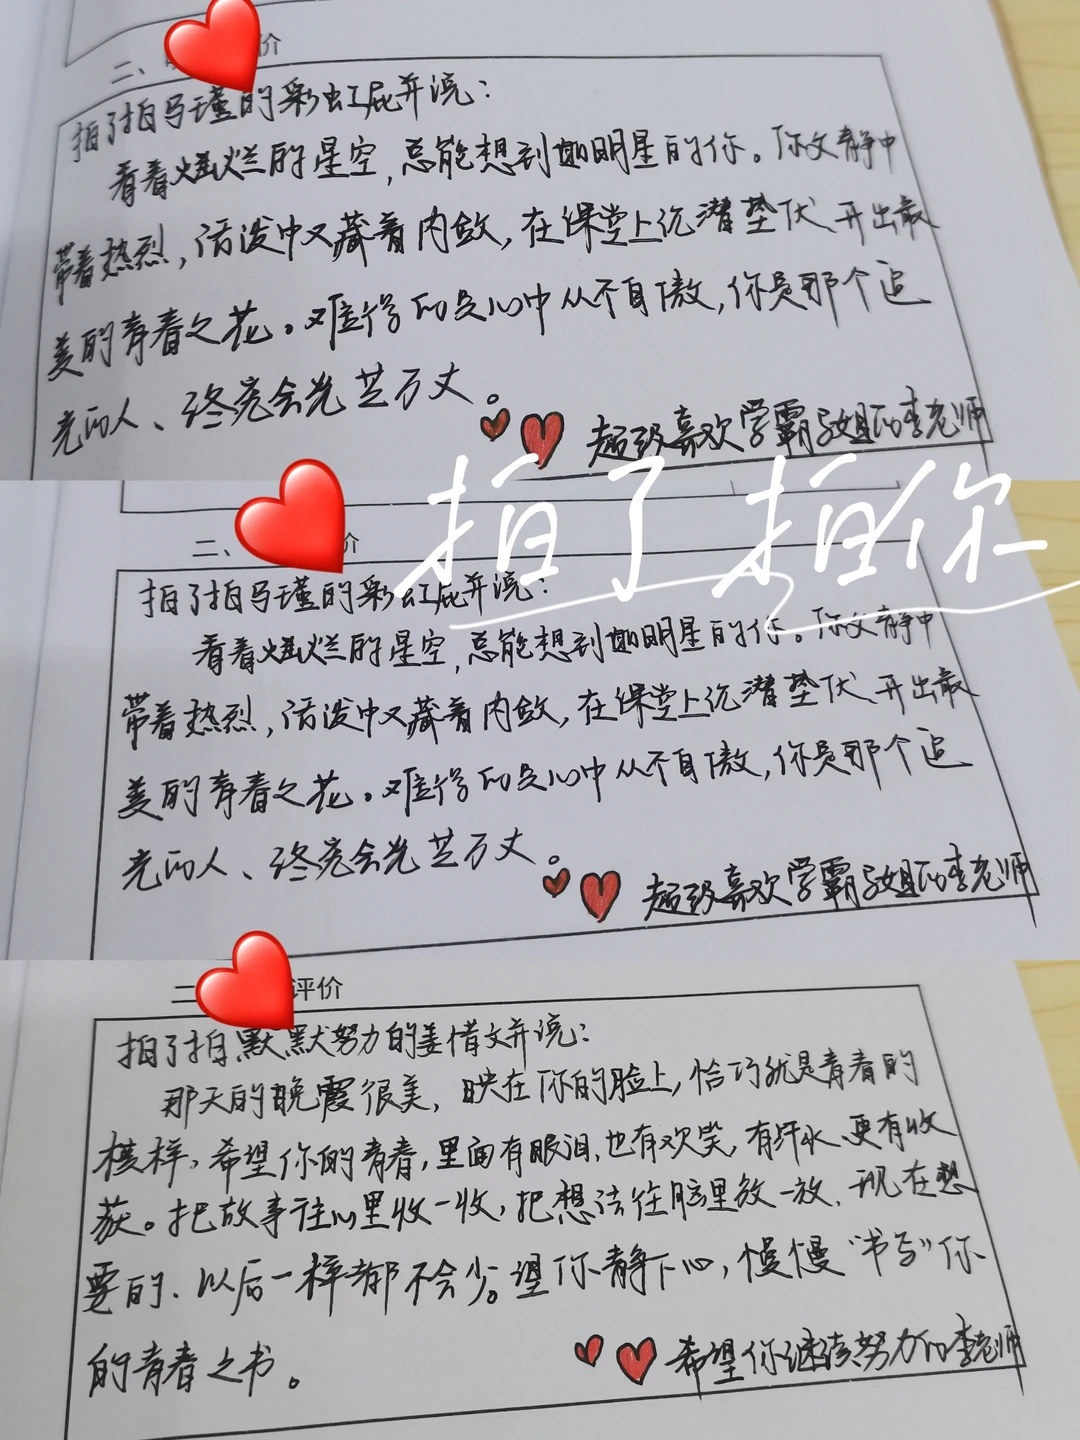 二、 价
拍了拍马瑾的彩虹屁并说：
看着燦烂的星空，总能想到如明星的你。你文静中
带着热烈，活泼中又藏着内敛，在课堂上沉潜蛰伏、开出最
美的青春之花。难得的是心中从不自傲，你是那个追
光的人、终究会光芒万丈。
超级喜欢学霸子姐的李老师
拍了拍你
二、 价
拍了拍马瑾的彩虹屁并说：
看着燦烂的星空，总能想到如明星的你。你文静中
带着热烈，活泼中又藏着内敛，在课堂上沉潜蛰伏、开出最
美的青春之花。难得的是心中从不自傲，你是那个追
光的人、终究会光芒万丈。
超级喜欢学霸子姐的李老师
二 评价
拍了拍默默努力的姜惜文并说：
那天的晚霞很美，映在你的脸上，恰巧就是青春的
模样，希望你的青春，里面有眼泪，也有欢笑，有汗水、更有收
获。把故事往心里收一收，把想法往脑里放一放，现在想
要的、以后一样都不会少。望你静下心，慢慢“书写”你
的青春之书。
希望你继续努力的李老师